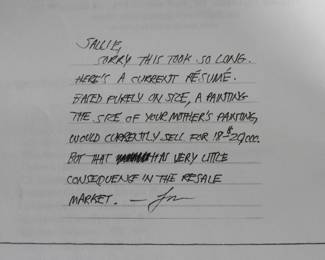 SALLIE,
SORRY THIS TOOK SO LONG.
HERE'S A CURRENT RÉSUMÉ.
BASED PURELY ON SIZE, A PAINTING
THE SIZE OF YOUR MOTHER'S PAINTING
WOULD CURRENTLY SELL FOR 18-$20,000.
BUT THAT HAS VERY LITTLE
CONSEQUENCE IN THE RESALE
MARKET. —